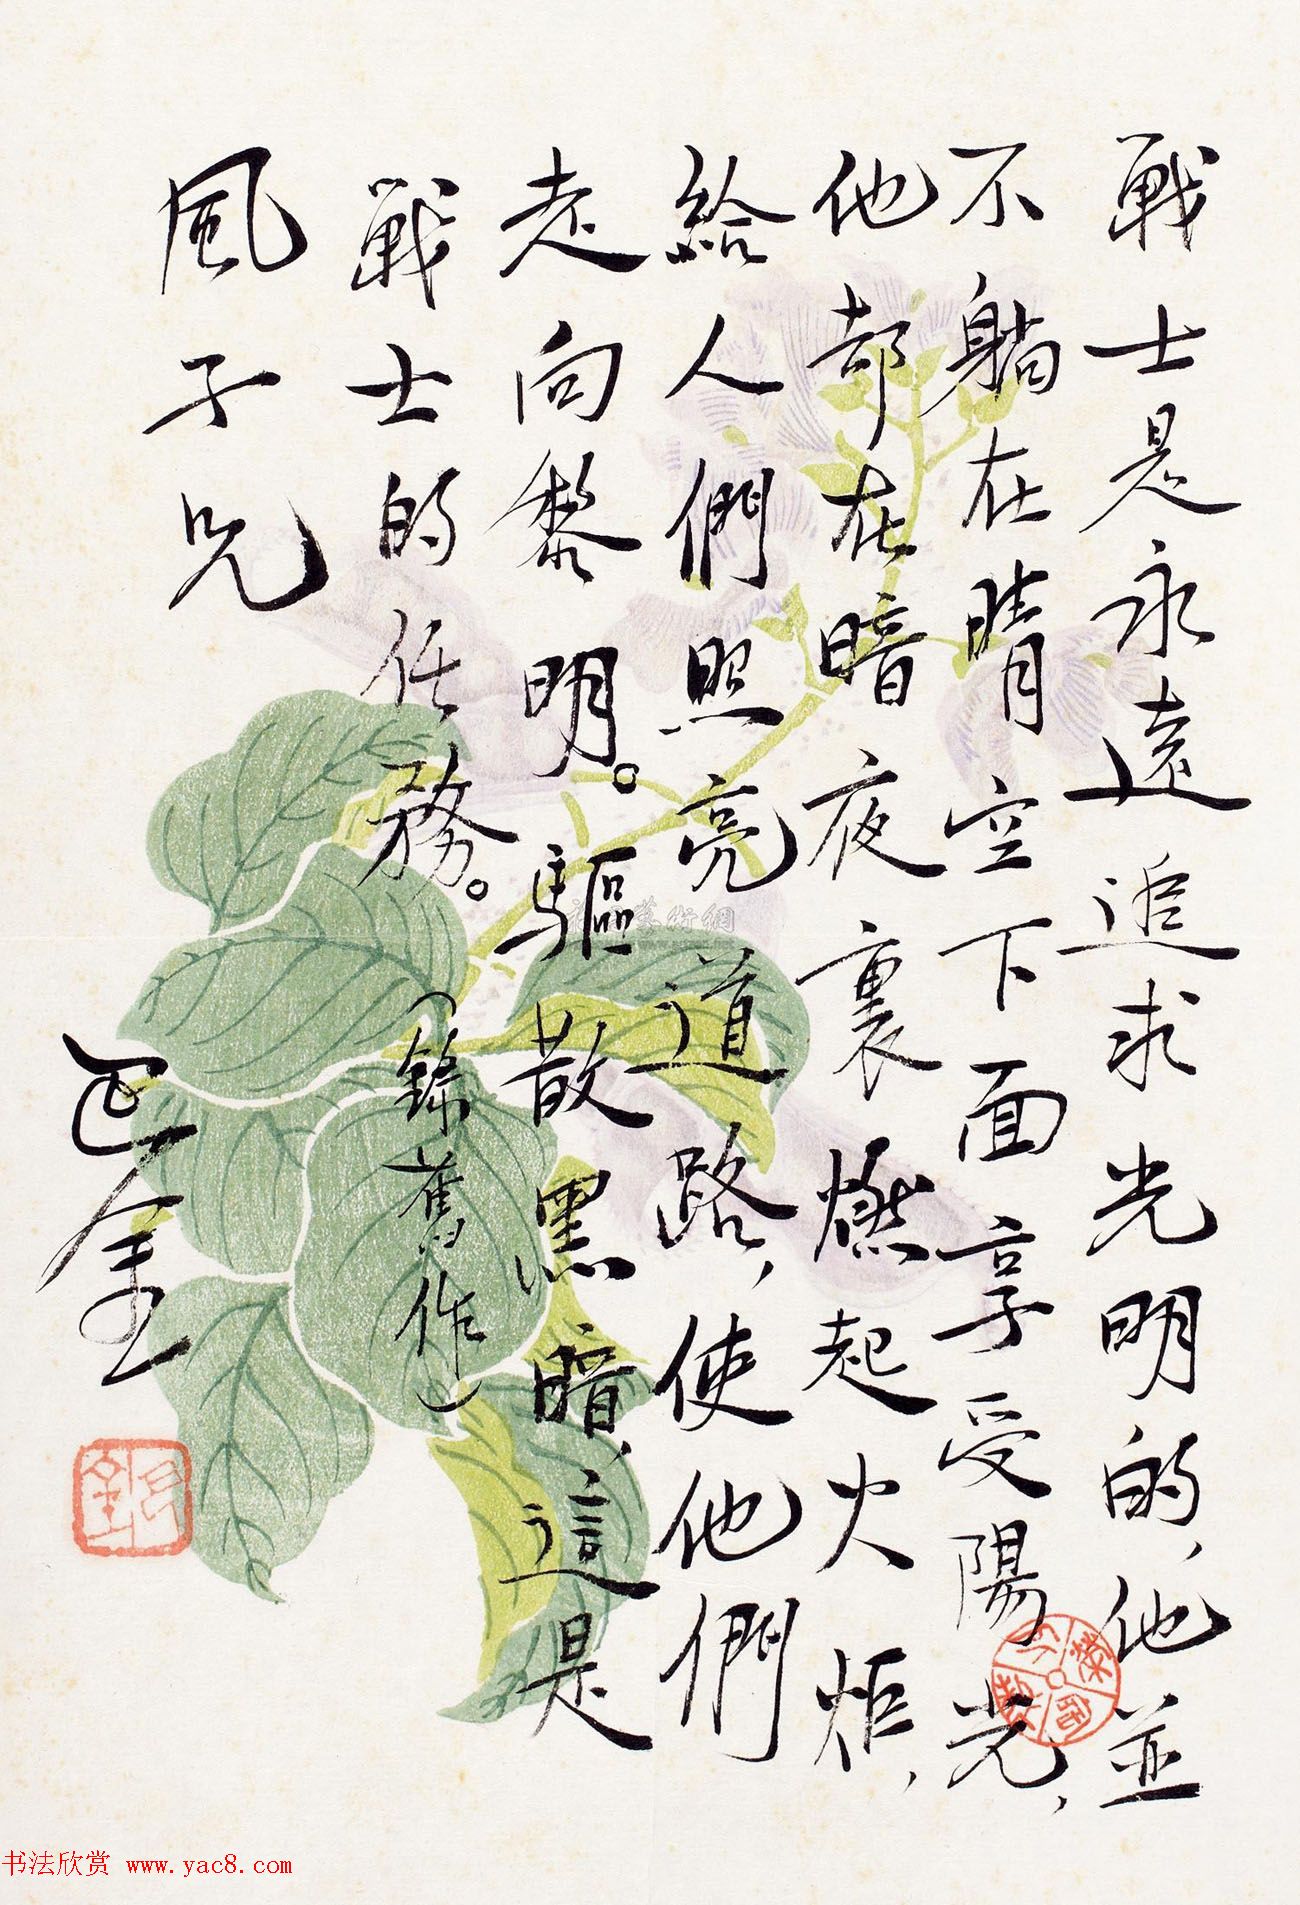 戰士是永遠追求光明的，他並
不躺在晴空下面享受陽光，
他却在暗夜裏燃起火炬，
給人們照亮道路，使他們
走向黎明。驅散黑暗，這是
戰士的任務。
（錄舊作）
風子兄
巴金
书法欣赏 www.yac8.com